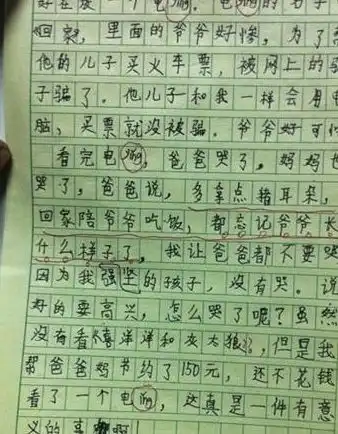 好在放一个电ying。电ying的名子
回家，里面的爷爷好惨，为了
他的儿子买火车票，被网上的骗
子骗了。他儿子和我一样会用电
脑，买票就没被骗。爷爷好可
看完电ying，爸爸哭了，妈妈也
哭了，爸爸说，多拿点猪耳朵，
回家陪爷爷吃饭，都忘记爷爷长
什么样子了。我让爸爸都不要哭
因为我强坚的孩子，没有哭。说
好的要高兴，怎么哭了呢？虽然
没有看喜洋洋和灰太狼，但是我
帮爸爸妈节约了150元，还不花钱
看了一个电ying，这真是一件有意
义的事啊！